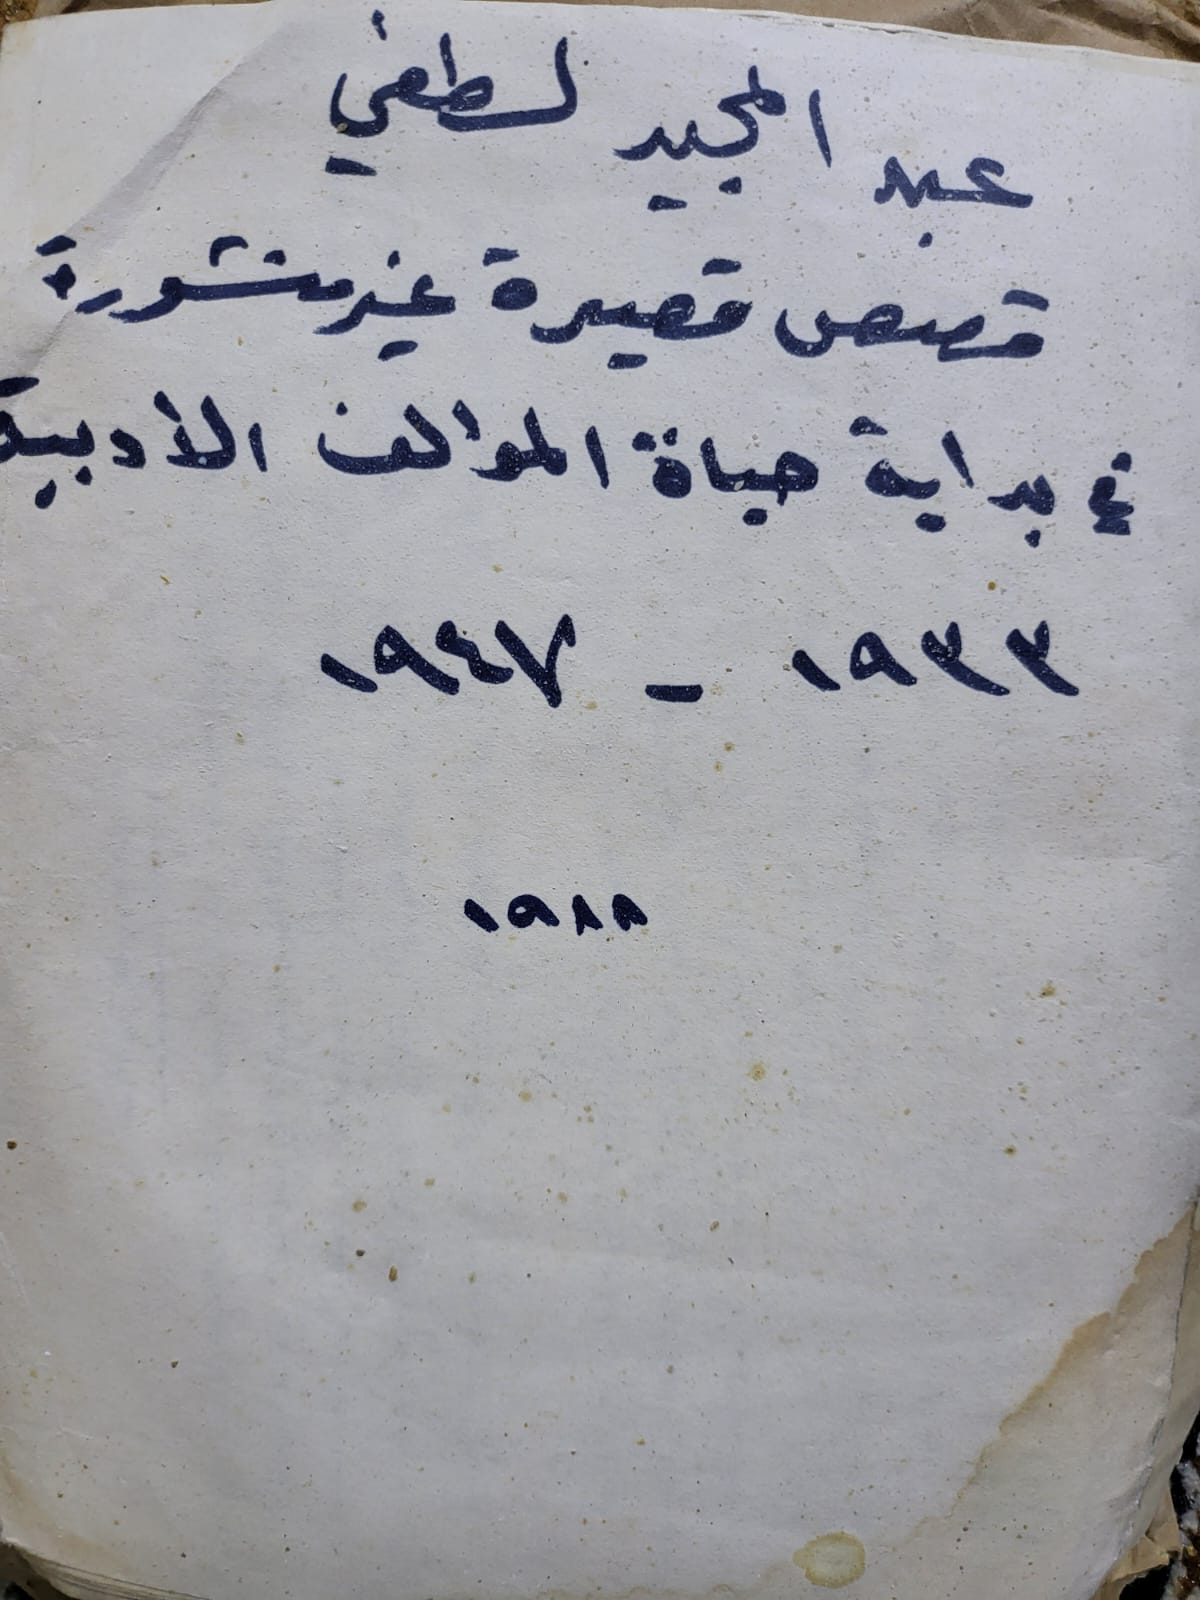 عبد المجيد لطفي
قصص قصيرة غير منشورة
في بداية حياة المؤالف الأدبية
١٩٣٣ - ١٩٤٧
١٩٨٨